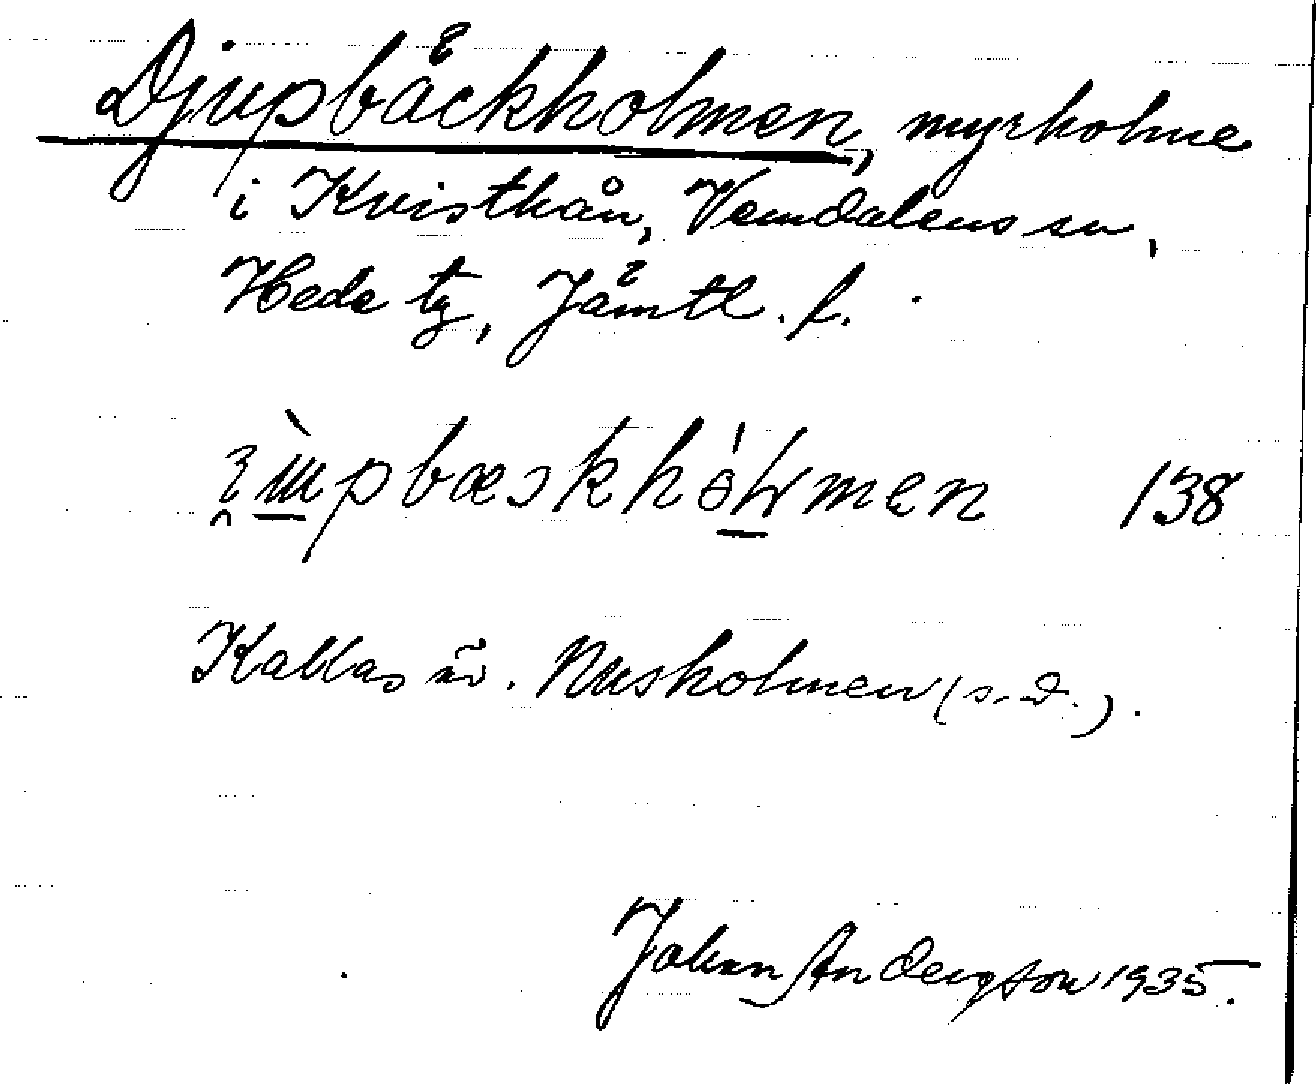 Djupbäckholmen, myrholme
i Kvisthån, Vemdalens sn,
Hede tg, Jämtl. l.
138
Kallas äv. Musholmen (s.d.).
Johan Anderson 1935.